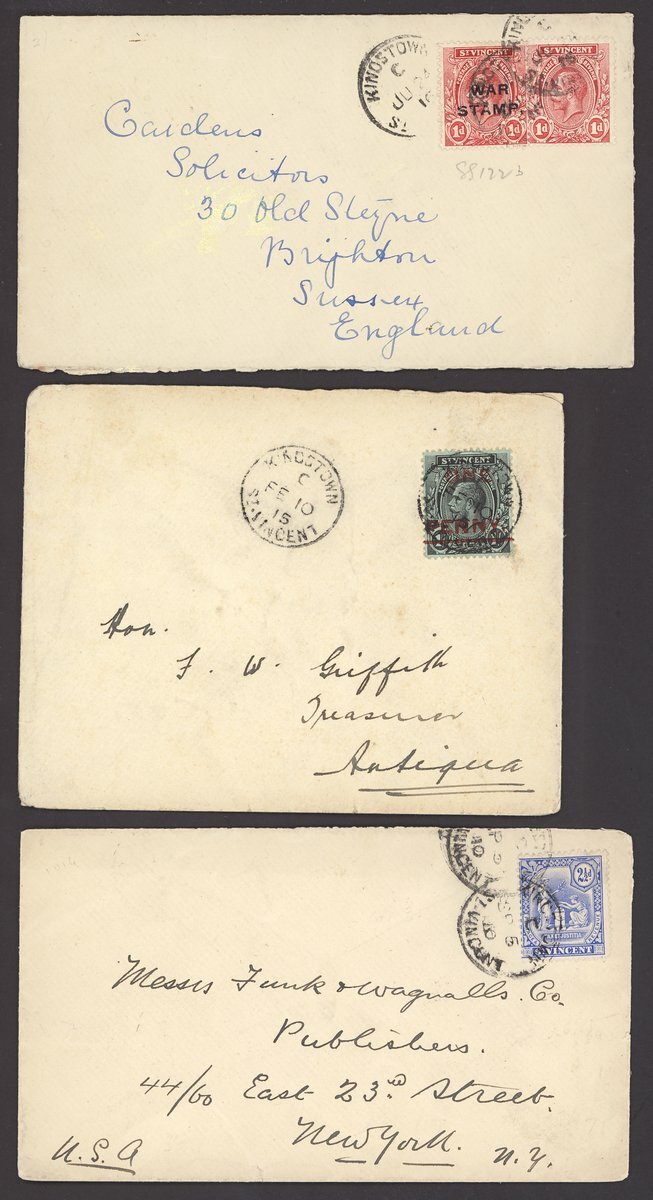 KINGSTOWN
C
ST.
ST VINCENT
ST VINCENT
WAR
STAMP
1d 1d 1d
SS122b
Cardens
Solicitors
30 Old Steyne
Brighton
Sussex
England
KINGSTOWN
C
FE 10
15
ST. VINCENT
ST VINCENT
ONE
PENNY
Hon.
F. W. Griffith
Treasurer
Antigua
2½d
PAX ET JUSTITIA
VINCENT
SP 5
10
Messrs Funk & Wagnalls. Co.
Publishers.
44/60 East 23rd Street.
New York. N.Y.
U.S.A